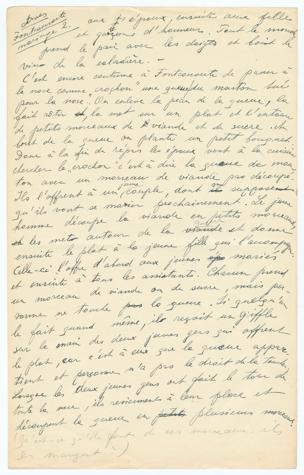 aux époux, ensuite aux filles
et garçons d'honneur. Tout le monde
prend le pain avec les doigts et boit le
vin de la saladière. —
C'est encore coutume à Fontcouverte de passer à
la noce comme "croclon" une queue du mouton tué
pour la noce. On enlève la peau de la queue, la
fait rôtir et la met sur un plat et l'entoure
de petits morceaux de viande et de sucre. Au
bout de la queue on plante un petit bouquet.
Donc à la fin du repas les époux vont à la cuisine
chercher le croclon c'est à dire la queue de mou
ton avec un morceau de viande pas découpé.
Ils l'offrent à un jeune couple, dont ils supposent
qu'ils vont se marier prochainement. Le jeune
homme découpe la viande en petits morceaux,
les mets autour de la viande et donne
ensuite le plat à la jeune fille qui l'accompagne.
Celle-ci l'offre d'abord aux jeunes mariés
et ensuite à tous les assistants. Chacun prend
un morceau de viande ou de sucre, mais per-
sonne ne touche la queue. Si quelqu'un
le fait quand même, il reçoit un giffle
sur la main des deux jeunes gens qui offrent
le plat, car c'est à eux que la queue appar-
tient et personne n'a pas le droit de la toucher.
Lorsque les deux jeunes gens ont fait le tour de
toute la noce, ils reviennent à leur place et
découpent la queue en plusieurs morceaux.
(Qu'est-ce qu'ils font de ces morceaux, ils
les mangent?)